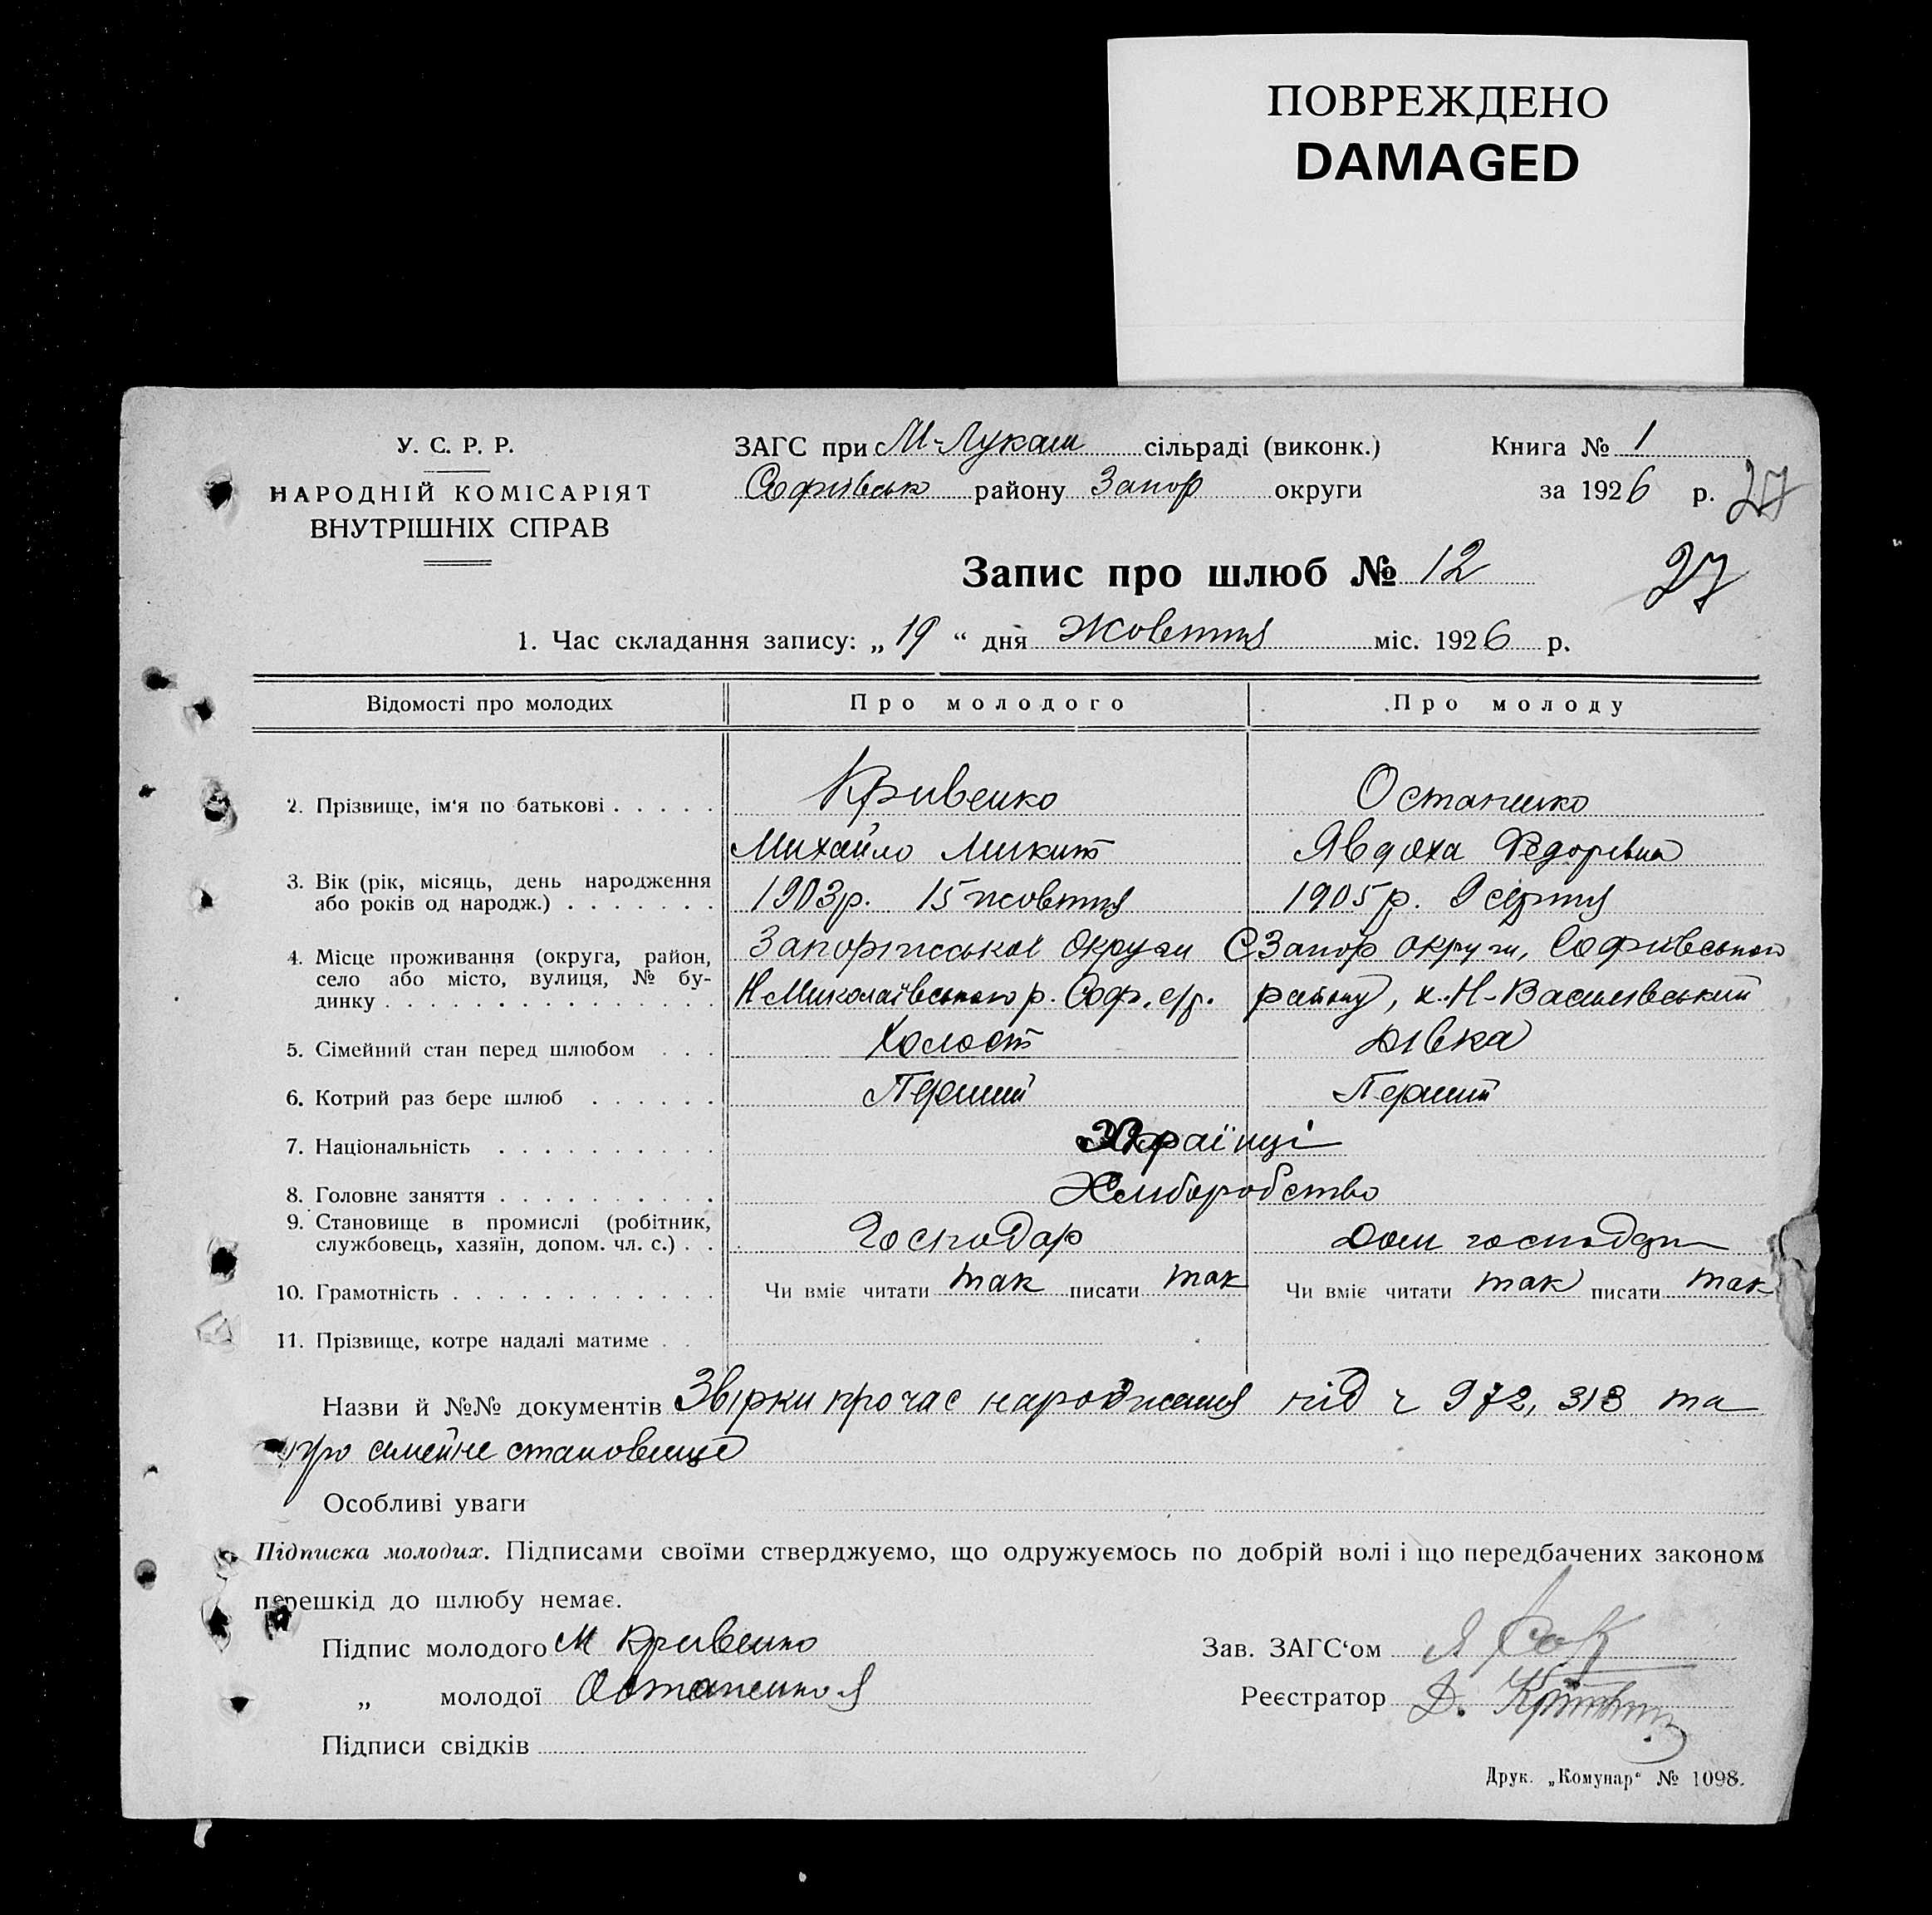 ПОВРЕЖДЕНО
DAMAGED
У. С. Р. Р.
НАРОДНІЙ КОМІСАРІЯТ
ВНУТРІШНІХ СПРАВ
ЗАГС при М-Лукаш сільраді (виконк.)
Софіївськ району Запор округи
Книга № 1
за 1926 р.
27
27
Запис про шлюб № 12
1. Час складання запису: „ 19 “ дня Жовтня міс. 1926 р.
Відомості про молодих Про молодого Про молоду
2. Прізвище, ім‘я по батькові . . . . . Кривенко Остапенко
Михайло Микит Явдоха Федорівна
3. Вік (рік, місяць, день народження
або років од народж.) . . . . . . . 1903р. 15 жовтня 1905 р. 9 серпня
4. Місце проживання (округа, район,
село або місто, вулиця, № бу-
динку . . . . . . . . . . . . . . .
Запоріжської Округи Запор округи, Софіївського
Н-Миколаївського р. Соф. с/р. району, х. Н-Василівський
5. Сімейний стан перед шлюбом . . . Холост Дівка
6. Котрий раз бере шлюб . . . . . . Перший Перший
7. Національність . . . . . . . . . . Українці
8. Головне заняття . . . . . . . . . . Хліборобство
9. Становище в промислі (робітник,
службовець, хазяїн, допом. чл. с.) . . Господар Дом господар
10. Грамотність . . . . . . . . . . . . Чи вміє читати так писати так Чи вміє читати так писати так
11. Прізвище, котре надалі матиме . .
Назви й №№ документів Звірки про час народження під ч 972, 313 та
про сімейне становище
Особливі уваги
Підписка молодих. Підписами своїми стверджуємо, що одружуємось по добрій волі і що передбачених законом
перешкід до шлюбу немає.
Підпис молодого М Кривенко
„ молодої Остапенко Я
Підписи свідків
Зав. ЗАГС‘ом
Реєстратор
Друк. „Комунар“ № 1098.